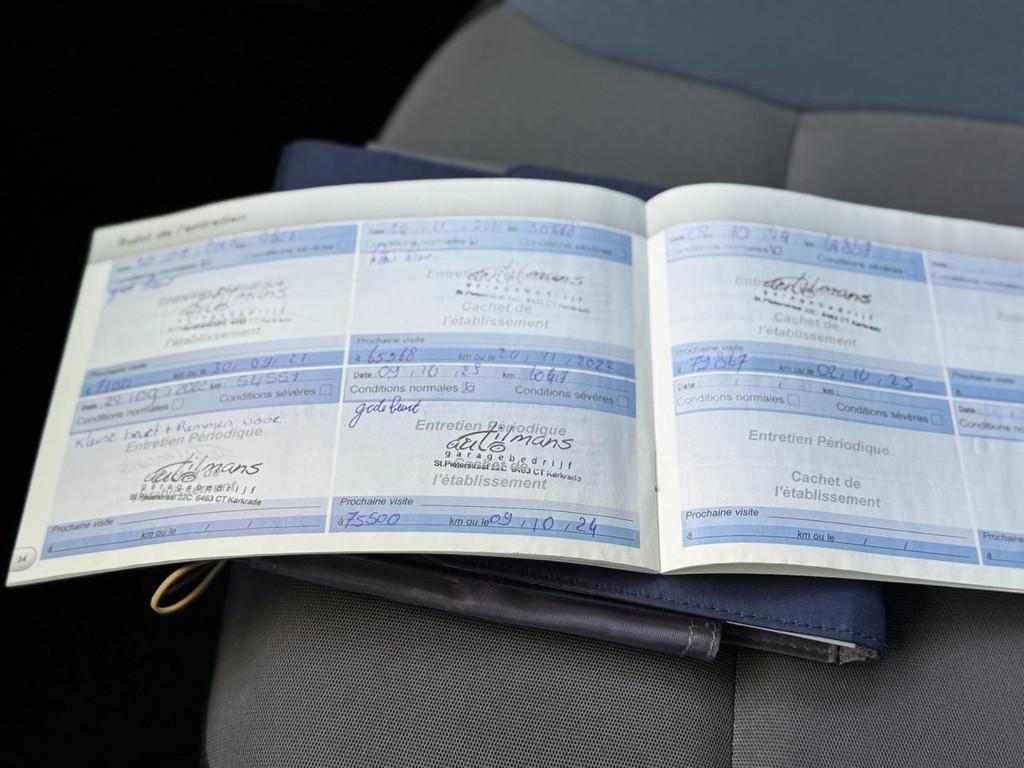 Suivi de l'entretien
Conditions normales Conditions sévères
Cachet de
l'établissement
Prochaine visite
à km ou le 30, 09, 21
Date : 28, 09, 2022 km : 54557
Conditions normales Conditions sévères
Kleine beurt + Remmen voor.
Entretien Périodique
autilmans
garagebedrijf
St.Pieterstraat 22C 6463 CT Kerkrade
Prochaine visite
à km ou le / /
34
Conditions normales Conditions sévères
Entretien
autilmans
garagebedrijf
St.Pieterstraat 22C 6463 CT Kerkrade
Cachet de
l'établissement
Prochaine visite
à 65968 km ou le 24, 11, 2022
Date : 09, 10, 23 km :
Conditions normales Conditions sévères
Entretien Périodique
autilmans
garagebedrijf
Cachet de
St.Pieterstraat 22C 6463 CT Kerkrade
l'établissement
Prochaine visite
à 75500 km ou le 09, 10, 24
02, 10, 24 km
Conditions normales Conditions sévères
autilmans
garagebedrijf
St.Pieterstraat 22C 6463 CT Kerkrade
Cachet de
l'établissement
Prochaine visite
à 79867 km ou le 02, 10, 25
Date : / / km :
Conditions normales Conditions sévères
Entretien Périodique
Cachet de
l'établissement
Prochaine visite
à km ou le / /
Prochaine
à